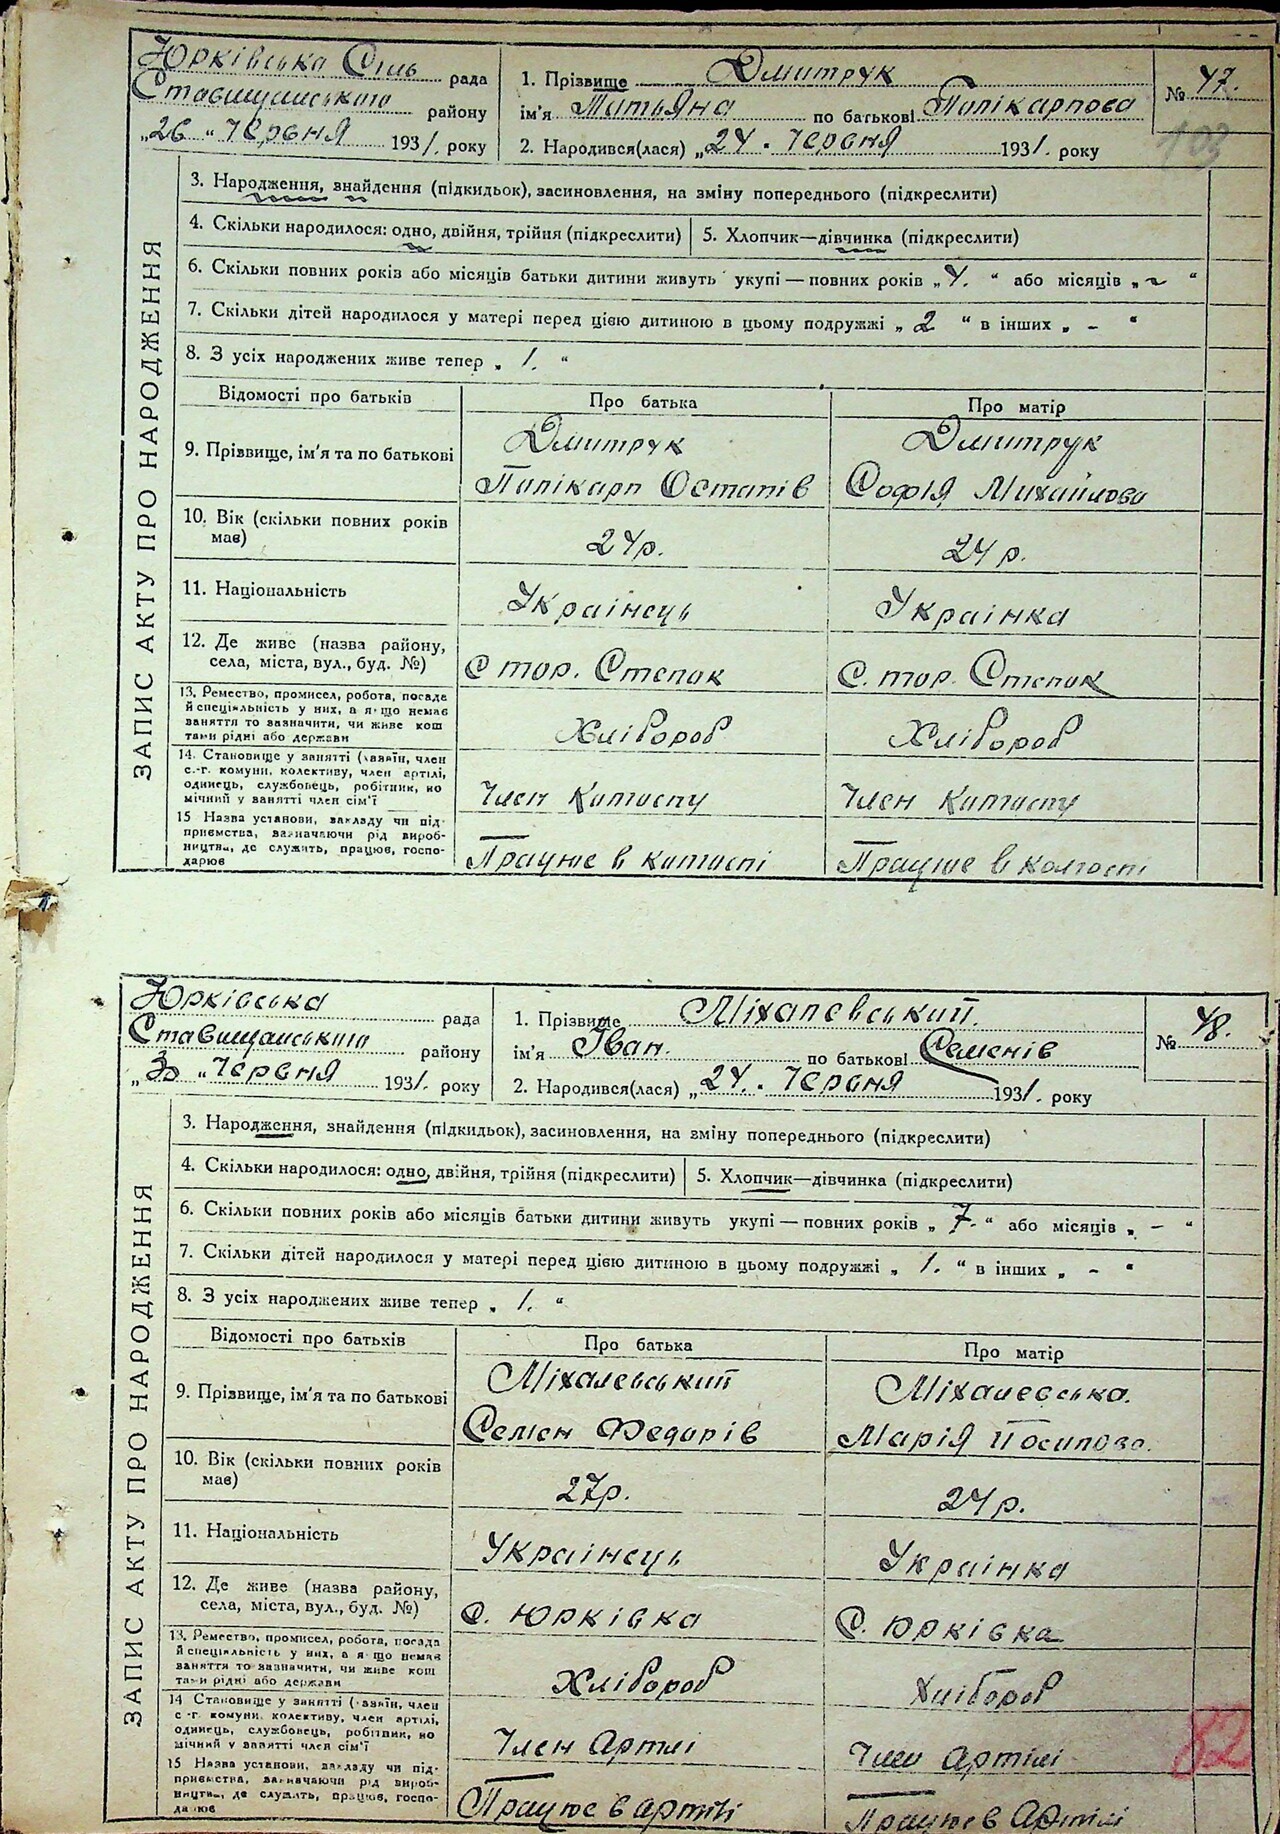 Юрківська Сіль рада
Ставищанського району
„26“ Червня 1931. року
1. Прізвище Дмитрук
ім'я Татьяна по батькові Полікарпова
2. Народився(лася) „24. Червня 1931. року
№ 47.
103
ЗАПИС АКТУ ПРО НАРОДЖЕННЯ
3. Народження, знайдення (підкидьок), засиновлення, на зміну попереднього (підкреслити)
4. Скільки народилося: одно, двійня, трійня (підкреслити) 5. Хлопчик—дівчинка (підкреслити)
6. Скільки повних років або місяців батьки дитини живуть укупі — повних років „4.“ або місяців „~“
7. Скільки дітей народилося у матері перед цією дитиною в цьому подружжі „2“ в інших „-“
8. З усіх народжених живе тепер „1.“
Відомості про батьків Про батька Про матір
9. Прізвище, ім'я та по батькові
Дмитрук Дмитрук
Полікарп Остапів Софія Михайлова
10. Вік (скільки повних років
має)
24р. 24 р.
11. Національність Українець Українка
12. Де живе (назва району,
села, міста, вул., буд. №)
С тор. Степок С. тор. Степок
13. Ремество, промисел, робота, посада
й спеціяльність у них, а якщо немає
заняття то зазначити, чи живе кош
тами рідні або держави
Хлібороб Хлібороб
14. Становище у занятті (хазяїн, член
с.-г. комуни, колективу, член артілі,
одинець, службовець, робітник, по
мічний у занятті член сім'ї
Член Колгоспу Член Колгоспу
15 Назва установи, закладу чи під-
приємства, зазначаючи рід вироб-
ництва, де служить, працює, госпо-
дарює
Працює в колгоспі Працює в колгоспі
Юрківська рада
Ставищанського району
„30“ Червня 1931. року
1. Прізвище Міхалевський.
ім'я Іван. по батькові Семенів
2. Народився(лася) „24. Червня 1931. року
№ 48.
ЗАПИС АКТУ ПРО НАРОДЖЕННЯ
3. Народження, знайдення (підкидьок), засиновлення, на зміну попереднього (підкреслити)
4. Скільки народилося: одно, двійня, трійня (підкреслити) 5. Хлопчик—дівчинка (підкреслити)
6. Скільки повних років або місяців батьки дитини живуть укупі — повних років „7.“ або місяців „-“
7. Скільки дітей народилося у матері перед цією дитиною в цьому подружжі „1.“ в інших „-“
8. З усіх народжених живе тепер „1.“
Відомості про батьків Про батька Про матір
9. Прізвище, ім'я та по батькові
Міхалевський Міхалевська.
Семен Федорів Марія Йосипова.
10. Вік (скільки повних років
має)
27р. 24 р.
11. Національність Українець Українка
12. Де живе (назва району,
села, міста, вул., буд. №)
С. Юрківка С. Юрківка
13. Ремество, промисел, робота, посада
й спеціяльність у них, а якщо немає
заняття то зазначити, чи живе кош
тами рідні або держави
Хлібороб Хлібороб
14 Становище у занятті (хазяїн, член
с.-г. комуни, колективу, член артілі,
одинець, службовець, робітник, по
мічний у занятті член сім'ї
Член Артілі Член Артілі
82
15 Назва установи, закладу чи під-
приємства, зазначаючи рід вироб-
ництва, де служить, працює, госпо-
дарює
Працює в артілі Працює в Артілі